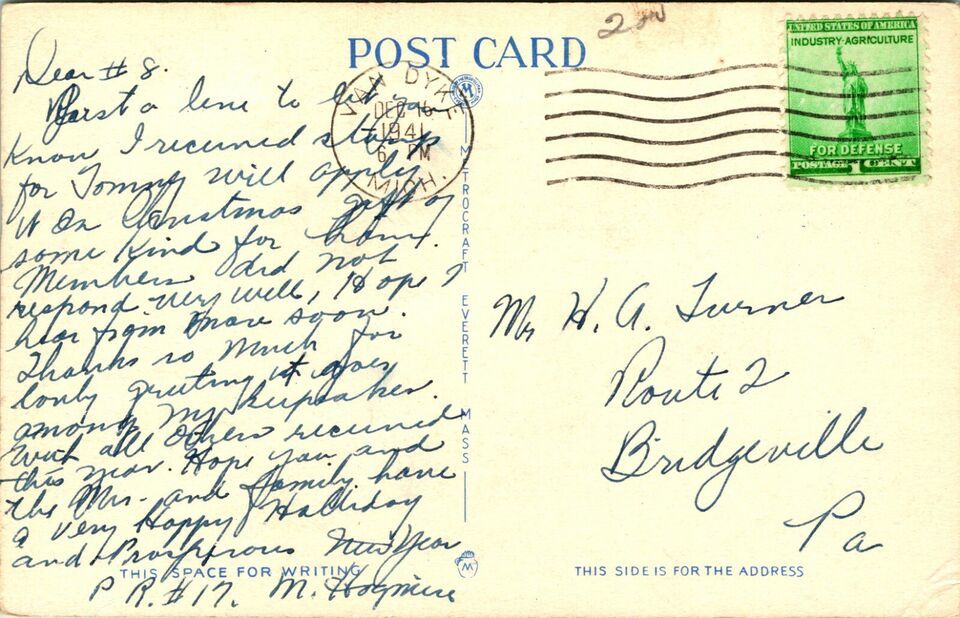 POST CARD
2
Dear # 8.
Just a line to let you
Know I received stamps
for Tommy will apply
it on Christmas gift of
some Kind for him.
Members did not
respond very well, Hope I
hear from more soon.
Thanks so much for
lovly greeting it goes
among my keepsakes.
With all others received
this year. Hope you and
the Mrs. and family have
a Very Happy Holliday
and Prosperous New Year
P R. # 17. M.
THIS SPACE FOR WRITING
VAN DYKE
DEC 16
1941
6 PM
MICH.
METROCRAFT EVERETT MASS
UNITED STATES OF AMERICA
INDUSTRY-AGRICULTURE
FOR DEFENSE
POSTAGE 1 CENT
Mr H. A. Turner
Route 2
Bridgeville
Pa
THIS SIDE IS FOR THE ADDRESS